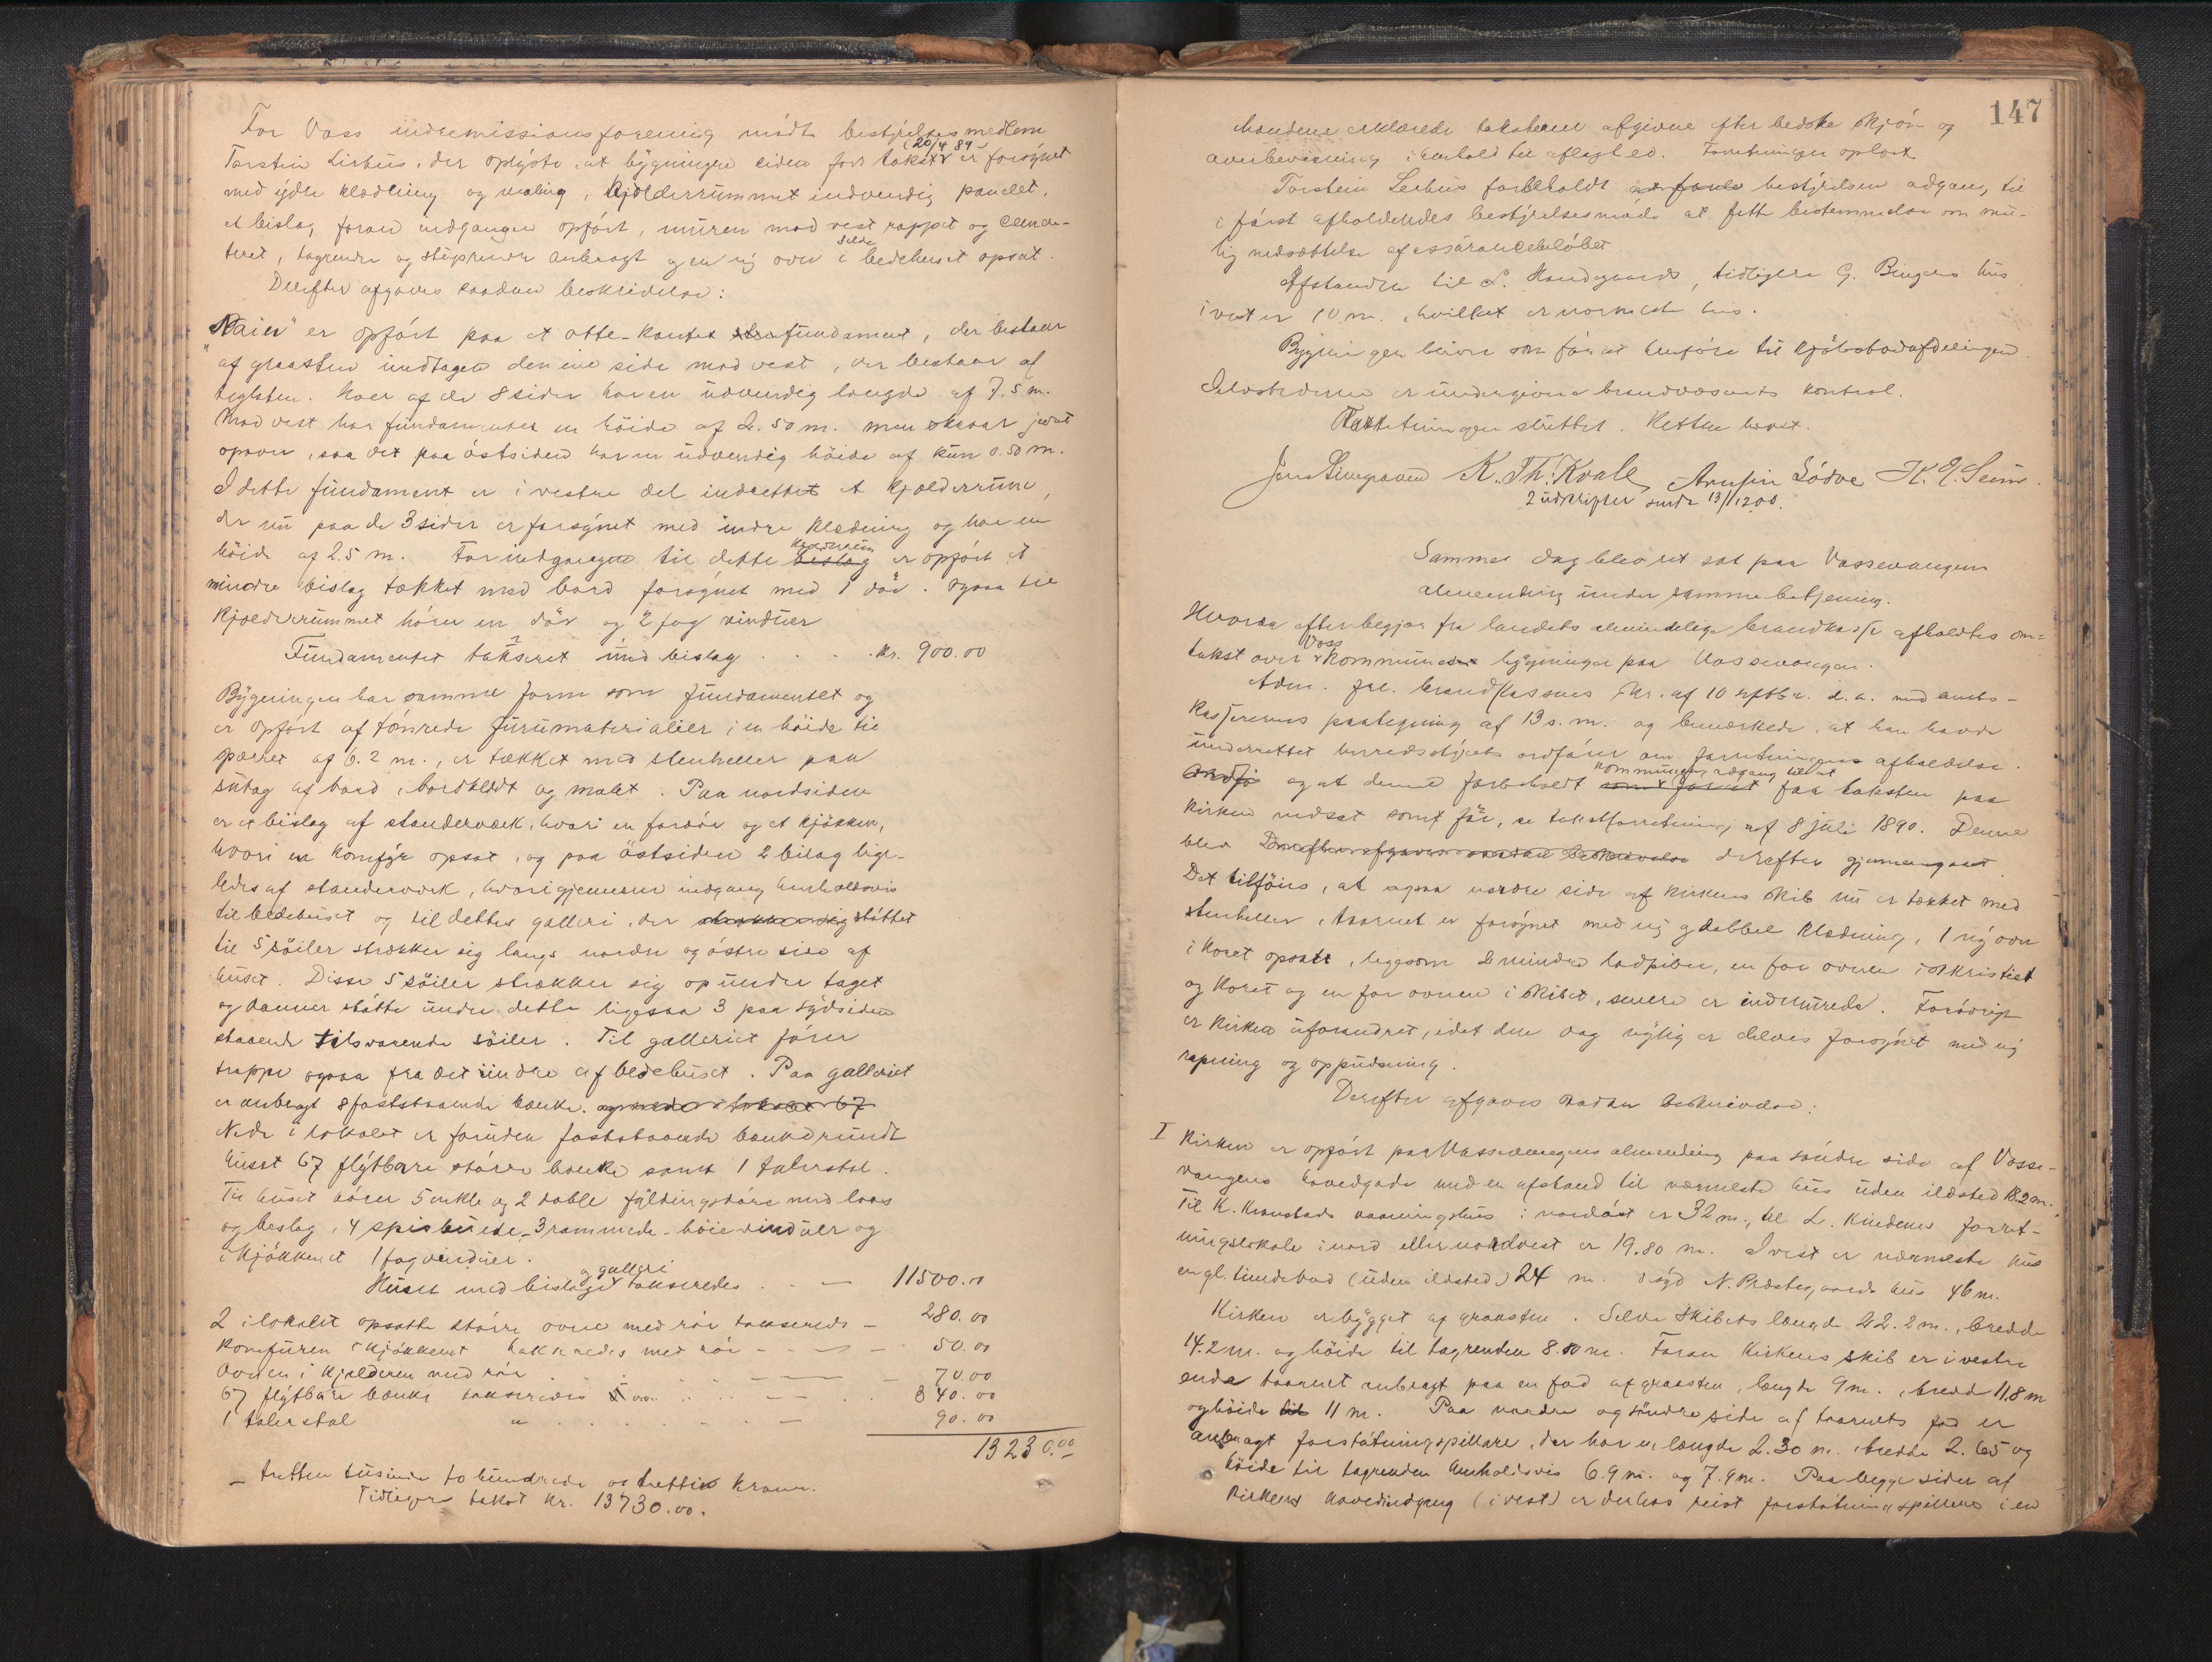 For Voss indremissionsforening mødte bestyrelsesmedlem
Torstein Lirhus, der oplyste, at bygningen siden forr. takst (20/4 89) er forsynet
med ydre klædning og maling, kjælderrummet indvendig panelet,
et bislag foran indgangen opført, muren mod vest rappet og cemen-
teret, tagrender og støprender anbragt og en ny ovn i selve bedehuset opsat.
Derefter afgaves saadan beskrivelse:
er opført paa et otte-kantet fundament, der bestaar
af graasten undtagen den ene side mod vest, der bestaar af
teglsten. Hver af de 8 sider har en udvendig længde af 7.5 m.
Mod vest har fundamentet en høide af 2.50 m. men skraar jevnt
opover, saa det paa østsiden har en udvendig høide af kun 0.50 m.
I dette fundament er i vestre del indrettet et kjælderrum,
der nu paa de 3 sider er forsynet med indre klædning og har en
høide af 2.5 m. For indgangen til dette kjælderrum er opført et
mindre bislag tækket med bord forsynet med 1 dør. Ogsaa til
kjælderrummet hører en dør og 2 fag vinduer
Fundamentet takseret med bislag . . . kr. 900.00
Bygningen har samme form som fundamentet og
er opført af tømrede furumaterialier, i en høide til
sperret af 6.2 m., er tækket med stenheller paa
sutag af bord, bordklædt og malet. Paa nordsiden
er et bislag af standerværk, hvori en fordør og et kjøkken,
hvori en komfyr opsat, og paa østsiden 2 bislag lige-
ledes af standerværk, hvorigjennem indgang henholdsvis
til bedehuset og til dettes galleri, der støttet
til 5 søiler strækker sig langs nordre og østre side af
huset. Disse 5 søiler strækker sig op under taget
og danner støtte under dette ligesaa 3 paa sydsiden
staaende tilsvarende søiler. Til galleriet fører
trappe ogsaa fra det indre af bedehuset. Paa galleriet
er anbragt 8 faststaaende bænke. og nede i lokalet 67
Nede i lokalet er foruden faststaaende bænke rundt
huset 67 flytbare større bænke samt 1 talerstol.
Til huset hører 5 enkle og 2 doble fyldingsdøre med laas
og beslag, 4 spidsbuede, 3 rammede høie vinduer og
i kjøkkenet 1 fag vinduer.
Huset med bislage og galleri takseredes . . — 11500.00
2 i lokalet opsatte større ovne med rør takseredes — 280.00
Komfuren i kjøkkenet takseredes med rør — 50.00
Ovnen i kjælderen med rør . . — 70.00
67 flytbare bænke takseredes 5.00 . . — 340.00
1 talerstol " . . — 90.00
13230.00
— tretten tusinde to hundrede og tretti Kroner.
Tidligere takst kr. 13730.00.
147
Mændene erklærede taksterne afgivne efter bedste skjøn og
overbevisning i henhold til aflagt ed. Forretningen oplæst
Torstein forbeholdt bestyrelsen adgang til
i først afholdendes bestyrelsesmøde at fatte bestemmelse om mu-
lig nedsættelse af assurancebeløbet
Afstanden til L. Handegaards, tidligere G. Bingers hus
i vest er 10 m., hvilket er nærmeste hus.
Bygningen bliver som før at henføre til kjøbstadafdelingen.
Ildstederne er undergivne brandvæsenets kontrol.
Forretningen sluttet. Retten hævet.
K. Th. Kvale
2 udskrifter sendt 13/1 1200.
Samme dag blev ret sat paa Vossevangens
almending under samme betjening.
Hvorda efter begjær fra landets almindelige brandkasse afholdtes om-
takst over Voss kommunes bygninger paa Vossevangen.
Adm. frl. brandkassens skr. af 10 septbr. d. a. med amts-
kassererens paategning af 13 s. m. og bemærkede, at han havde
underrettet herredsstyrets ordfører om forretningens afholdelse.
og at denne forbeholdt kommunens adgang til at faa taksten paa
kirken nedsat som før, se takstforretning af 8 juli 1890. Denne
blev Derefter afgaves saadan beskrivelse derefter gjennemgaaet.
Det tilføies, at ogsaa nordre side af kirkens skib nu er tækket med
stenheller, taarnet er forsynet med ny dobbel klædning, 1 ny ovn
i koret opsatt, ligesom 2 mindre , en for ovnen i sakristiet
og koret og en for ovnen i skibet, senere er indmurede. Forøvrigt
er kirken uforandret, idet den dog nylig er delvis forsynet med ny
rapning og oppudsning.
Derefter afgaves saadan beskrivelse:
I Kirken er opført paa Vossevangens almending paa søndre side af Vosse-
vangens hovedgade med en afstand til nærmeste hus uden ildsted 18.2 m.
Til K. vaaningshus i nordøst er 32 m., til L. forret-
ningslokale i nord eller nordvest er 19.80 m. I vest er nærmeste hus
en gl. tiendebod (uden ildsted) 24 m. i syd N. Præstegaards hus 46 m.
Kirken er bygget af graasten. Selve skibets længde 22.2 m., bredde
14.2 m. og høide til tagrenden 8.80 m. Foran kirkens skib er i vestre
ende taarnet anbragt paa en fod af graasten, længde 9 m., bredde 11.8 m
og høide 11 m. Paa nordre og søndre side af taarnets fod er
anbragt forstøtningspillare, der har en længde 2.30 m. bredde 2.65 og
høide til tagrenden henholdsvis 6.9 m. og 7.9 m. Paa begge sider af
kirkens hovedindgang (i vest) er derhos reist forstøtningspillere i en